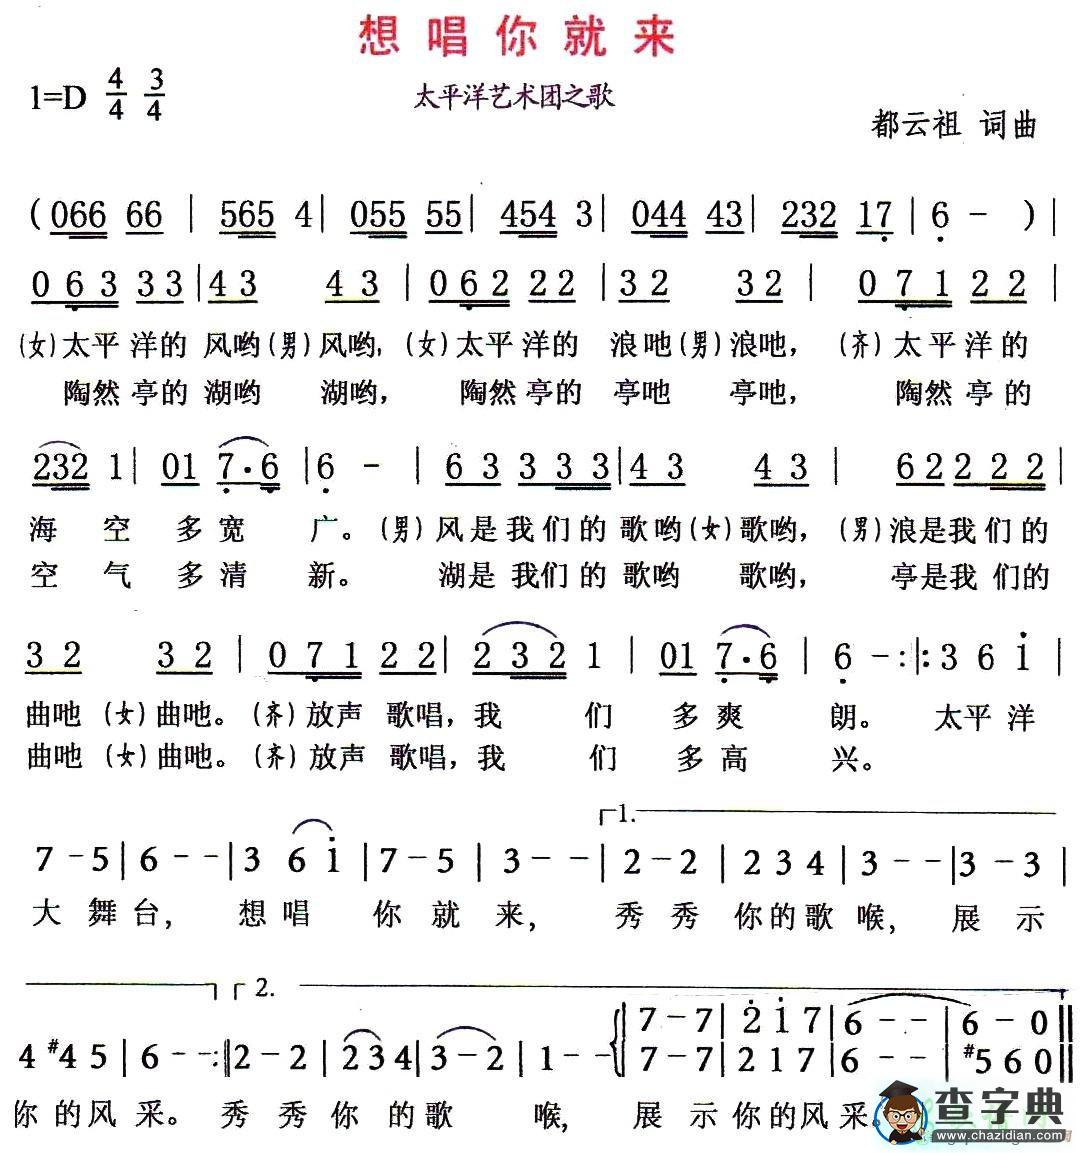 想唱你就来
1=D 4/4 3/4
太平洋艺术团之歌
都云祖 词曲
( 066 66 | 565 4 | 055 55 | 454 3 | 044 43 | 232 17 | 6 - ) |
0 6 3 3 3 | 4 3 4 3 | 0 6 2 2 2 | 3 2 3 2 | 0 7 1 2 2 |
(女)太平洋的 风哟(男)风哟, (女)太平洋的 浪吔(男)浪吔, (齐)太平洋的
陶然亭的 湖哟 湖哟, 陶然亭的 亭吔 亭吔, 陶然亭的
232 1 | 01 7·6 | 6 - | 6 3 3 3 3 | 4 3 4 3 | 6 2 2 2 2 |
海 空 多宽 广。(男)风是我们的 歌哟(女)歌哟, (男)浪是我们的
空 气 多清 新。 湖是我们的 歌哟 歌哟, 亭是我们的
3 2 3 2 | 0 7 1 2 2 | 2 3 2 1 | 01 7·6 | 6 - :||: 3 6 i |
曲吔 (女)曲吔。(齐)放声 歌唱,我 们 多爽 朗。 太平洋
曲吔 (女)曲吔。(齐)放声 歌唱,我 们 多高 兴。
1.
7 - 5 | 6 - - | 3 6 i | 7 - 5 | 3 - - | 2 - 2 | 2 3 4 | 3 - - | 3 - 3 |
大 舞台, 想唱 你就来, 秀秀你的歌喉, 展示
2.
7 - 7 | 2 i 7 | 6 - - | 6 - 0 ||
4 #4 5 | 6 - - :|| 2 - 2 | 2 3 4 | 3 - 2 | 1 - - | 7 - 7 | 2 1 7 | 6 - - | #5 6 0 ||
你的风采。秀秀你的歌 喉, 展示你的风采。
查字典
www.chazidian.com